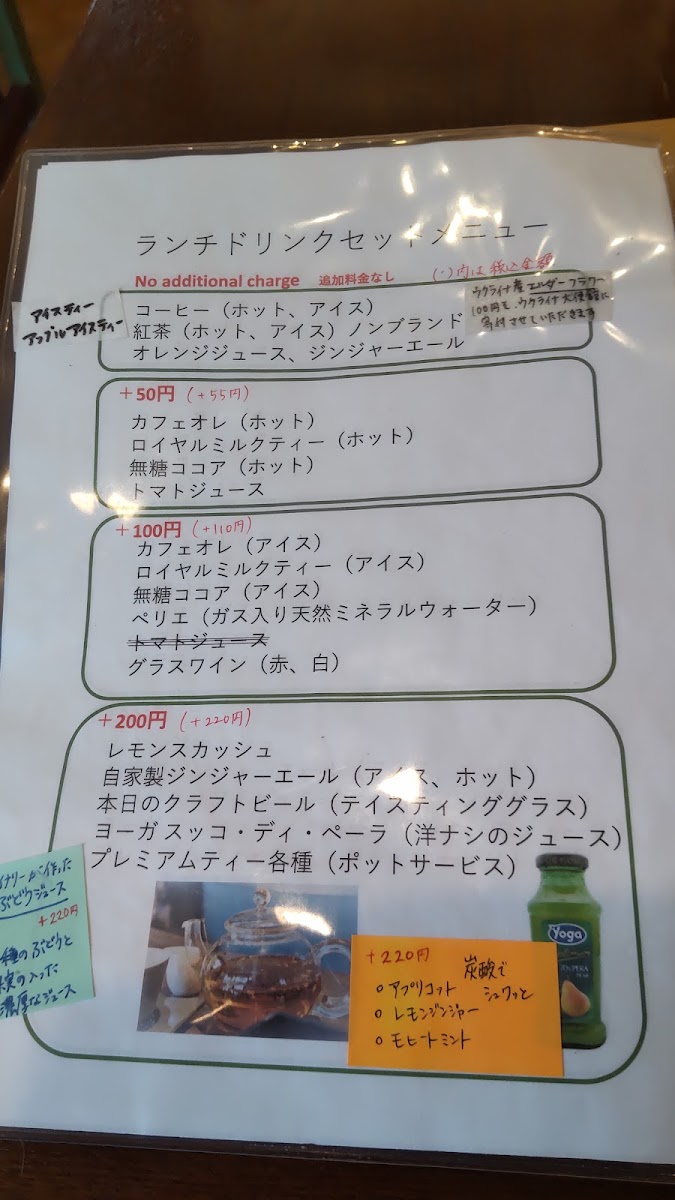 ランチドリンクセットメニュー
No additional charge 追加料金なし
( )内は税込金額
アイスティー
アップルアイスティー
コーヒー（ホット、アイス）
紅茶（ホット、アイス）ノンブランド
オレンジジュース、ジンジャーエール
ウクライナ産エルダーフラワー
100円を、ウクライナ大使館に
寄付させていただきます
＋50円（+55円）
カフェオレ（ホット）
ロイヤルミルクティー（ホット）
無糖ココア（ホット）
トマトジュース
＋100円（+110円）
カフェオレ（アイス）
ロイヤルミルクティー（アイス）
無糖ココア（アイス）
ペリエ（ガス入り天然ミネラルウォーター）
トマトジュース
グラスワイン（赤、白）
＋200円（+220円）
レモンスカッシュ
自家製ジンジャーエール（アイス、ホット）
本日のクラフトビール（テイスティンググラス）
ヨーガ スッコ・ディ・ペーラ（洋ナシのジュース）
プレミアムティー各種（ポットサービス）
イナリーが作った
ぶどうジュース
+220円
種のぶどうと
果実の入った
濃厚なジュース
+220円
炭酸で
シュワッと
○アプリコット
○レモンジンジャー
○モヒートミント
Yoga